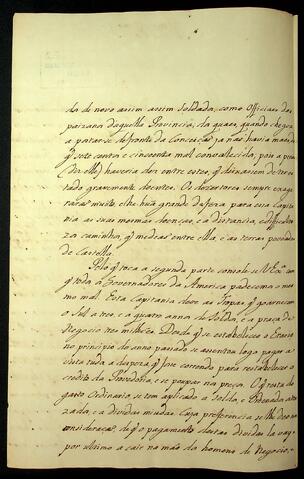 da de novo assim assim Soldada, como Officiaes da
paizana daquella Provincia, da quaes, quando chegou
a patarse defronte da Conceição ja não havia mais
q sete centos e cincoenta mal convalecidos, pois a
haveria dos entre estes, q deixassem de ter es
tado gravemente doentes. Os dezertores sempre exage
raraõ muito elhe huá grande da fora para esta Capi
tania as suas mesmas doenças, e a distancia, e difficulda
caminho, q medeao entre ella e as terras povoadas
de Castella.
Pelo q toca a segunda parte console se V. Ex.ª com
q todo Governadores da America padecem o mes
mo mal. Esta Capitania deve as Tropas q guarnecem
o Sul a tres, e a quatro annos de Soldo, e a praça de
Negocio tres milhões. Desde q se estabeleceo o Erario
no principio do anno passado se assentou logo pagar a
vista tuda a despeza q se fosse correndo para restabelecer o
credito da Provedoria, e se poupar no preço. O q resta do
gasto Ordinario se tem applicado a Soldo, e Ordenados atra
zados, e a dividas miudas. Cuja preferencia se lhe deo na
consideração, de q o pagamento destas dividas la vay
por ultimo a cair na mão do homens de Negocio,